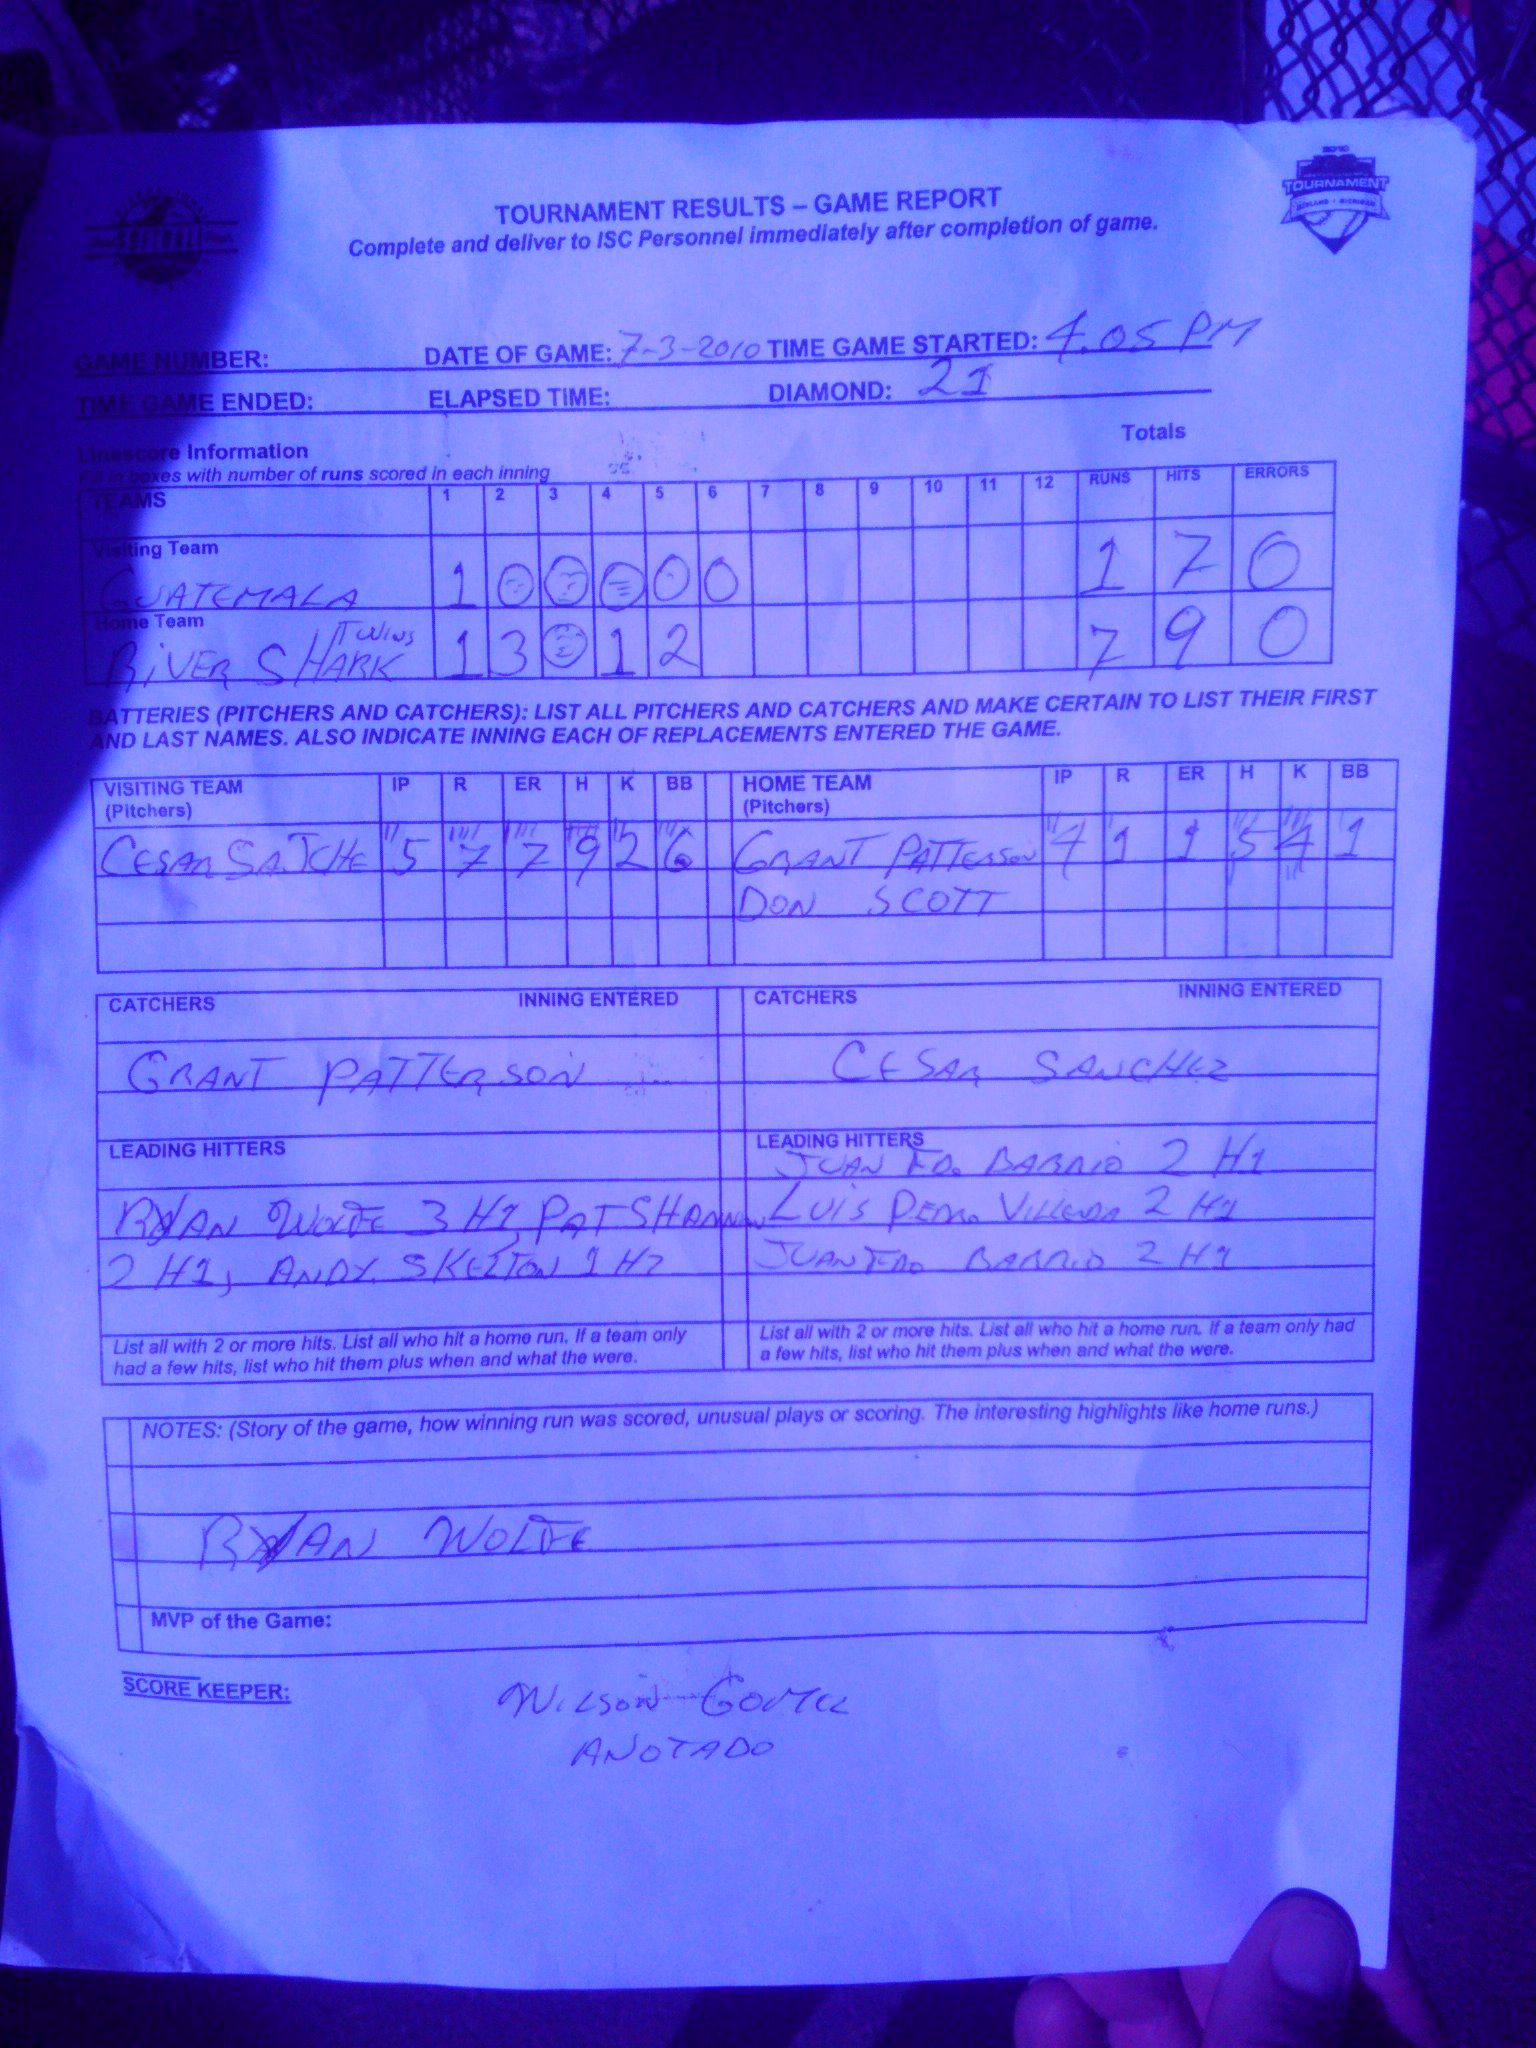 TOURNAMENT
TOURNAMENT RESULTS – GAME REPORT
Complete and deliver to ISC Personnel immediately after completion of game.
GAME NUMBER: DATE OF GAME: 7-3-2010 TIME GAME STARTED: 4.05 PM
TIME GAME ENDED: ELAPSED TIME: DIAMOND: 21
Linescore Information Totals
Fill in boxes with number of runs scored in each inning
TEAMS 1 2 3 4 5 6 7 8 9 10 11 12 RUNS HITS ERRORS
Visiting Team
GUATEMALA 1 0 0 0 0 0 1 7 0
Home Team
RIVER SHARK TWINS 1 3 0 1 2 7 9 0
BATTERIES (PITCHERS AND CATCHERS): LIST ALL PITCHERS AND CATCHERS AND MAKE CERTAIN TO LIST THEIR FIRST
AND LAST NAMES. ALSO INDICATE INNING EACH OF REPLACEMENTS ENTERED THE GAME.
VISITING TEAM IP R ER H K BB HOME TEAM IP R ER H K BB
(Pitchers) (Pitchers)
CESAR 5 7 7 9 2 6 GRANT PATTERSON 4 1 1 5 4 1
DON SCOTT
CATCHERS INNING ENTERED CATCHERS INNING ENTERED
GRANT PATTERSON CESAR SANCHEZ
LEADING HITTERS LEADING HITTERS
JUAN FDO. BARRIO 2 H1
RYAN WOLFE 3 H1, PAT SHANNON LUIS PEDRO VILLEDA 2 H1
2 H1, ANDY SKELTON 1 H1 JUAN FDO. BARRIO 2 H1
List all with 2 or more hits. List all who hit a home run. If a team only List all with 2 or more hits. List all who hit a home run. If a team only had
had a few hits, list who hit them plus when and what the were. a few hits, list who hit them plus when and what the were.
NOTES: (Story of the game, how winning run was scored, unusual plays or scoring. The interesting highlights like home runs.)
RYAN WOLFE
MVP of the Game:
SCORE KEEPER: WILSON GOMEZ
ANOTADO